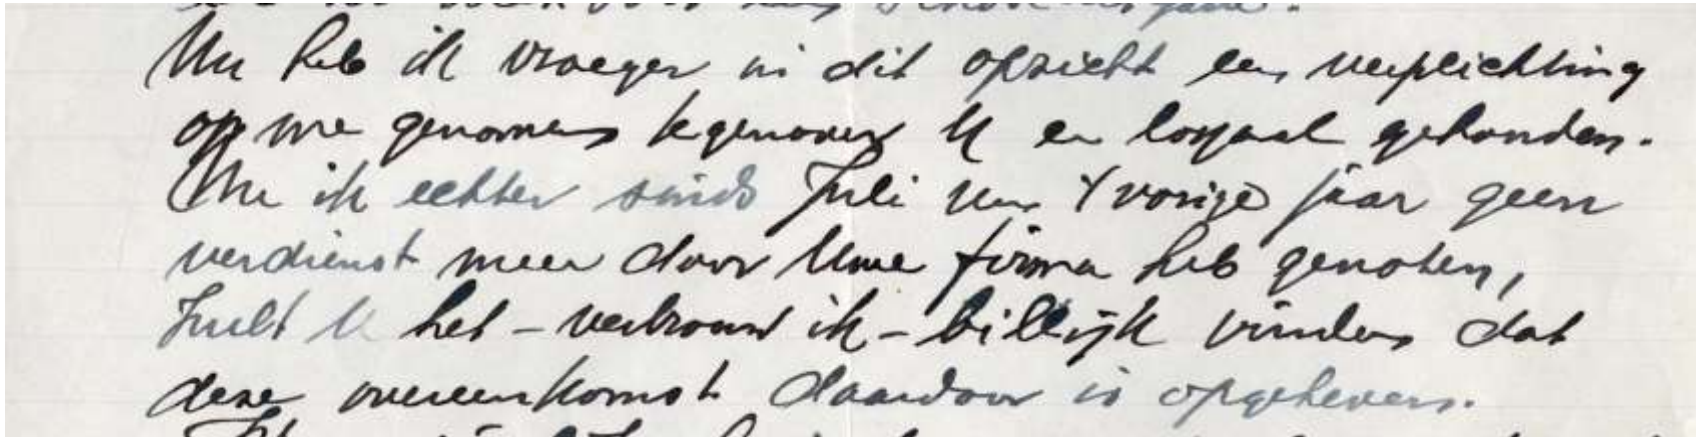 Nu heb ik vroeger in dit opzicht een verplichting
op me genomen tegenover U en loyaal gehouden.
Nu ik echter sinds Juli van 't vorige jaar geen
verdienst meer door Uwe firma heb genoten,
zult U het – vertrouw ik – billijk vinden dat
deze overeenkomst daardoor is opgeheven.